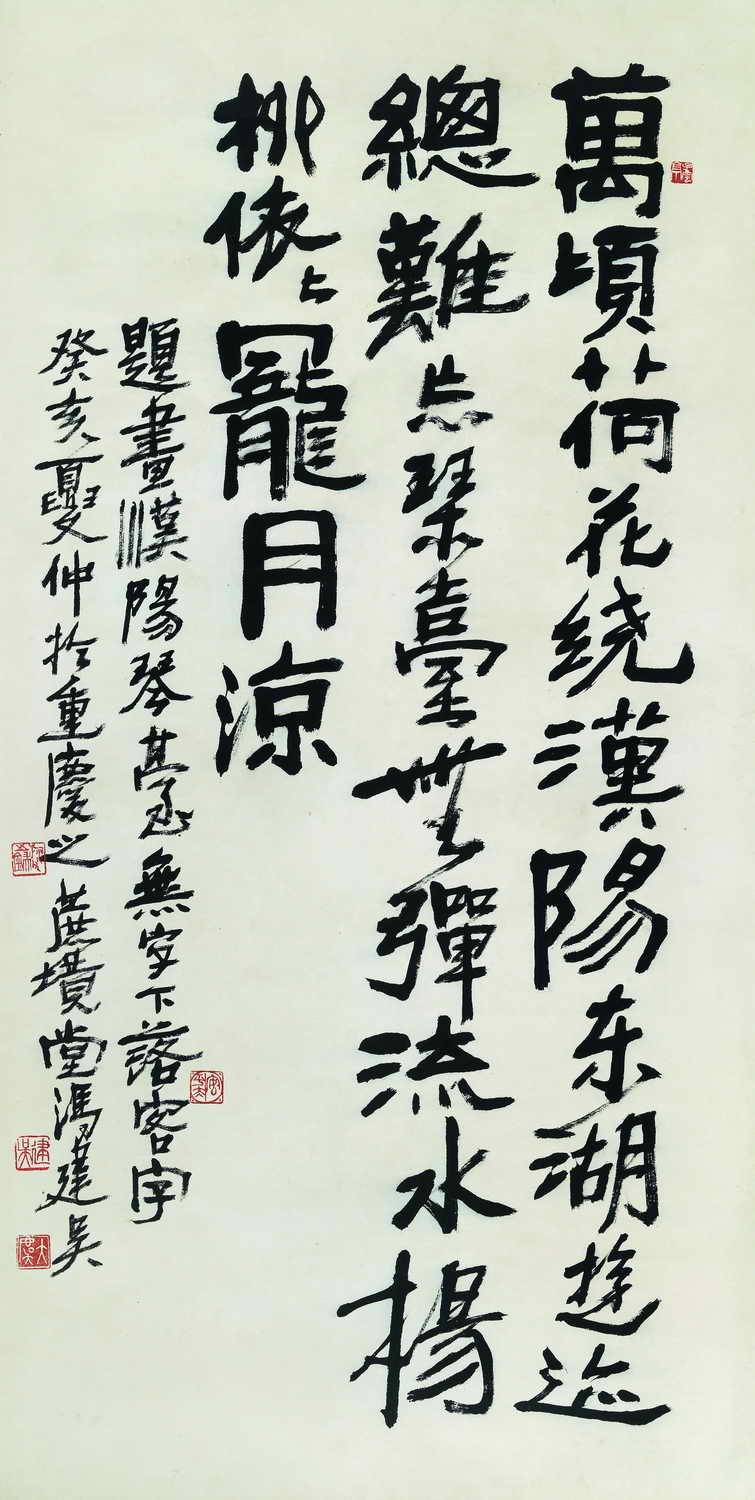 萬頃荷花绕漢陽东湖遊迹
總難忘琴臺無彈流水楊
柳依〻月涼
題畫漢陽琴臺無字下落客字
癸亥夏仲於重慶之蔗境堂馮建吳